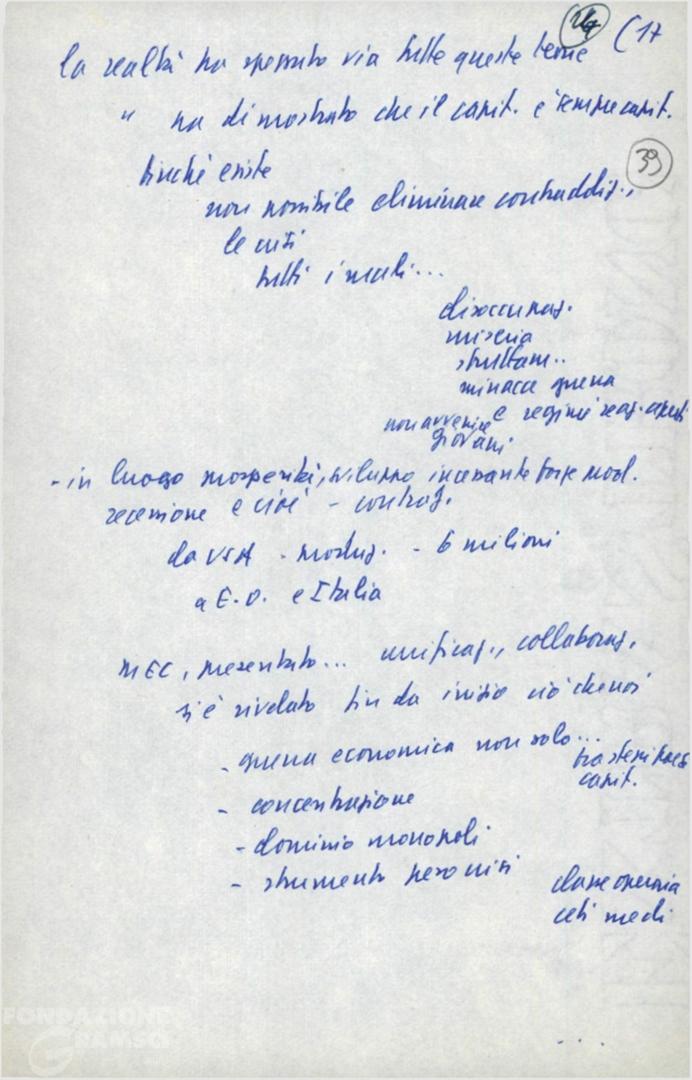 24 (17
la realtà ha spazzato via tutte queste teorie
" ha dimostrato che il capit. è sempre capit.
39
finché esiste
non possibile eliminare contraddiz.,
le crisi
tutti i mali...
disoccupaz.
miseria
sfruttam..
minacce guerra
e regimi reaz. aperti
non avvenire
giovani
- in luogo prosperità, sviluppo incessante forze prod.
recessione e cioè - contraz.
da USA - produz. - 6 milioni
a E.O. e Italia
MEC, presentato... unificaz., collaboraz.,
si è rivelato fin da inizio ciò che noi
- guerra economica non solo...
tra stessi paesi
capit.
- concentrazione
- dominio monopoli
- strumento peso crisi
classe operaia
ceti medi
...
FONDAZIONE
GRAMSCI